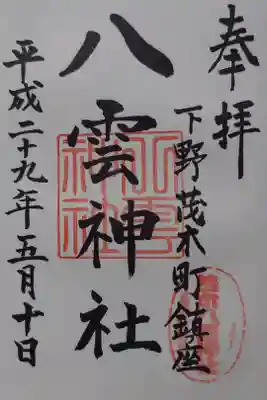 奉拝
下野茂木町鎮座
八雲神社
平成二十九年五月十日